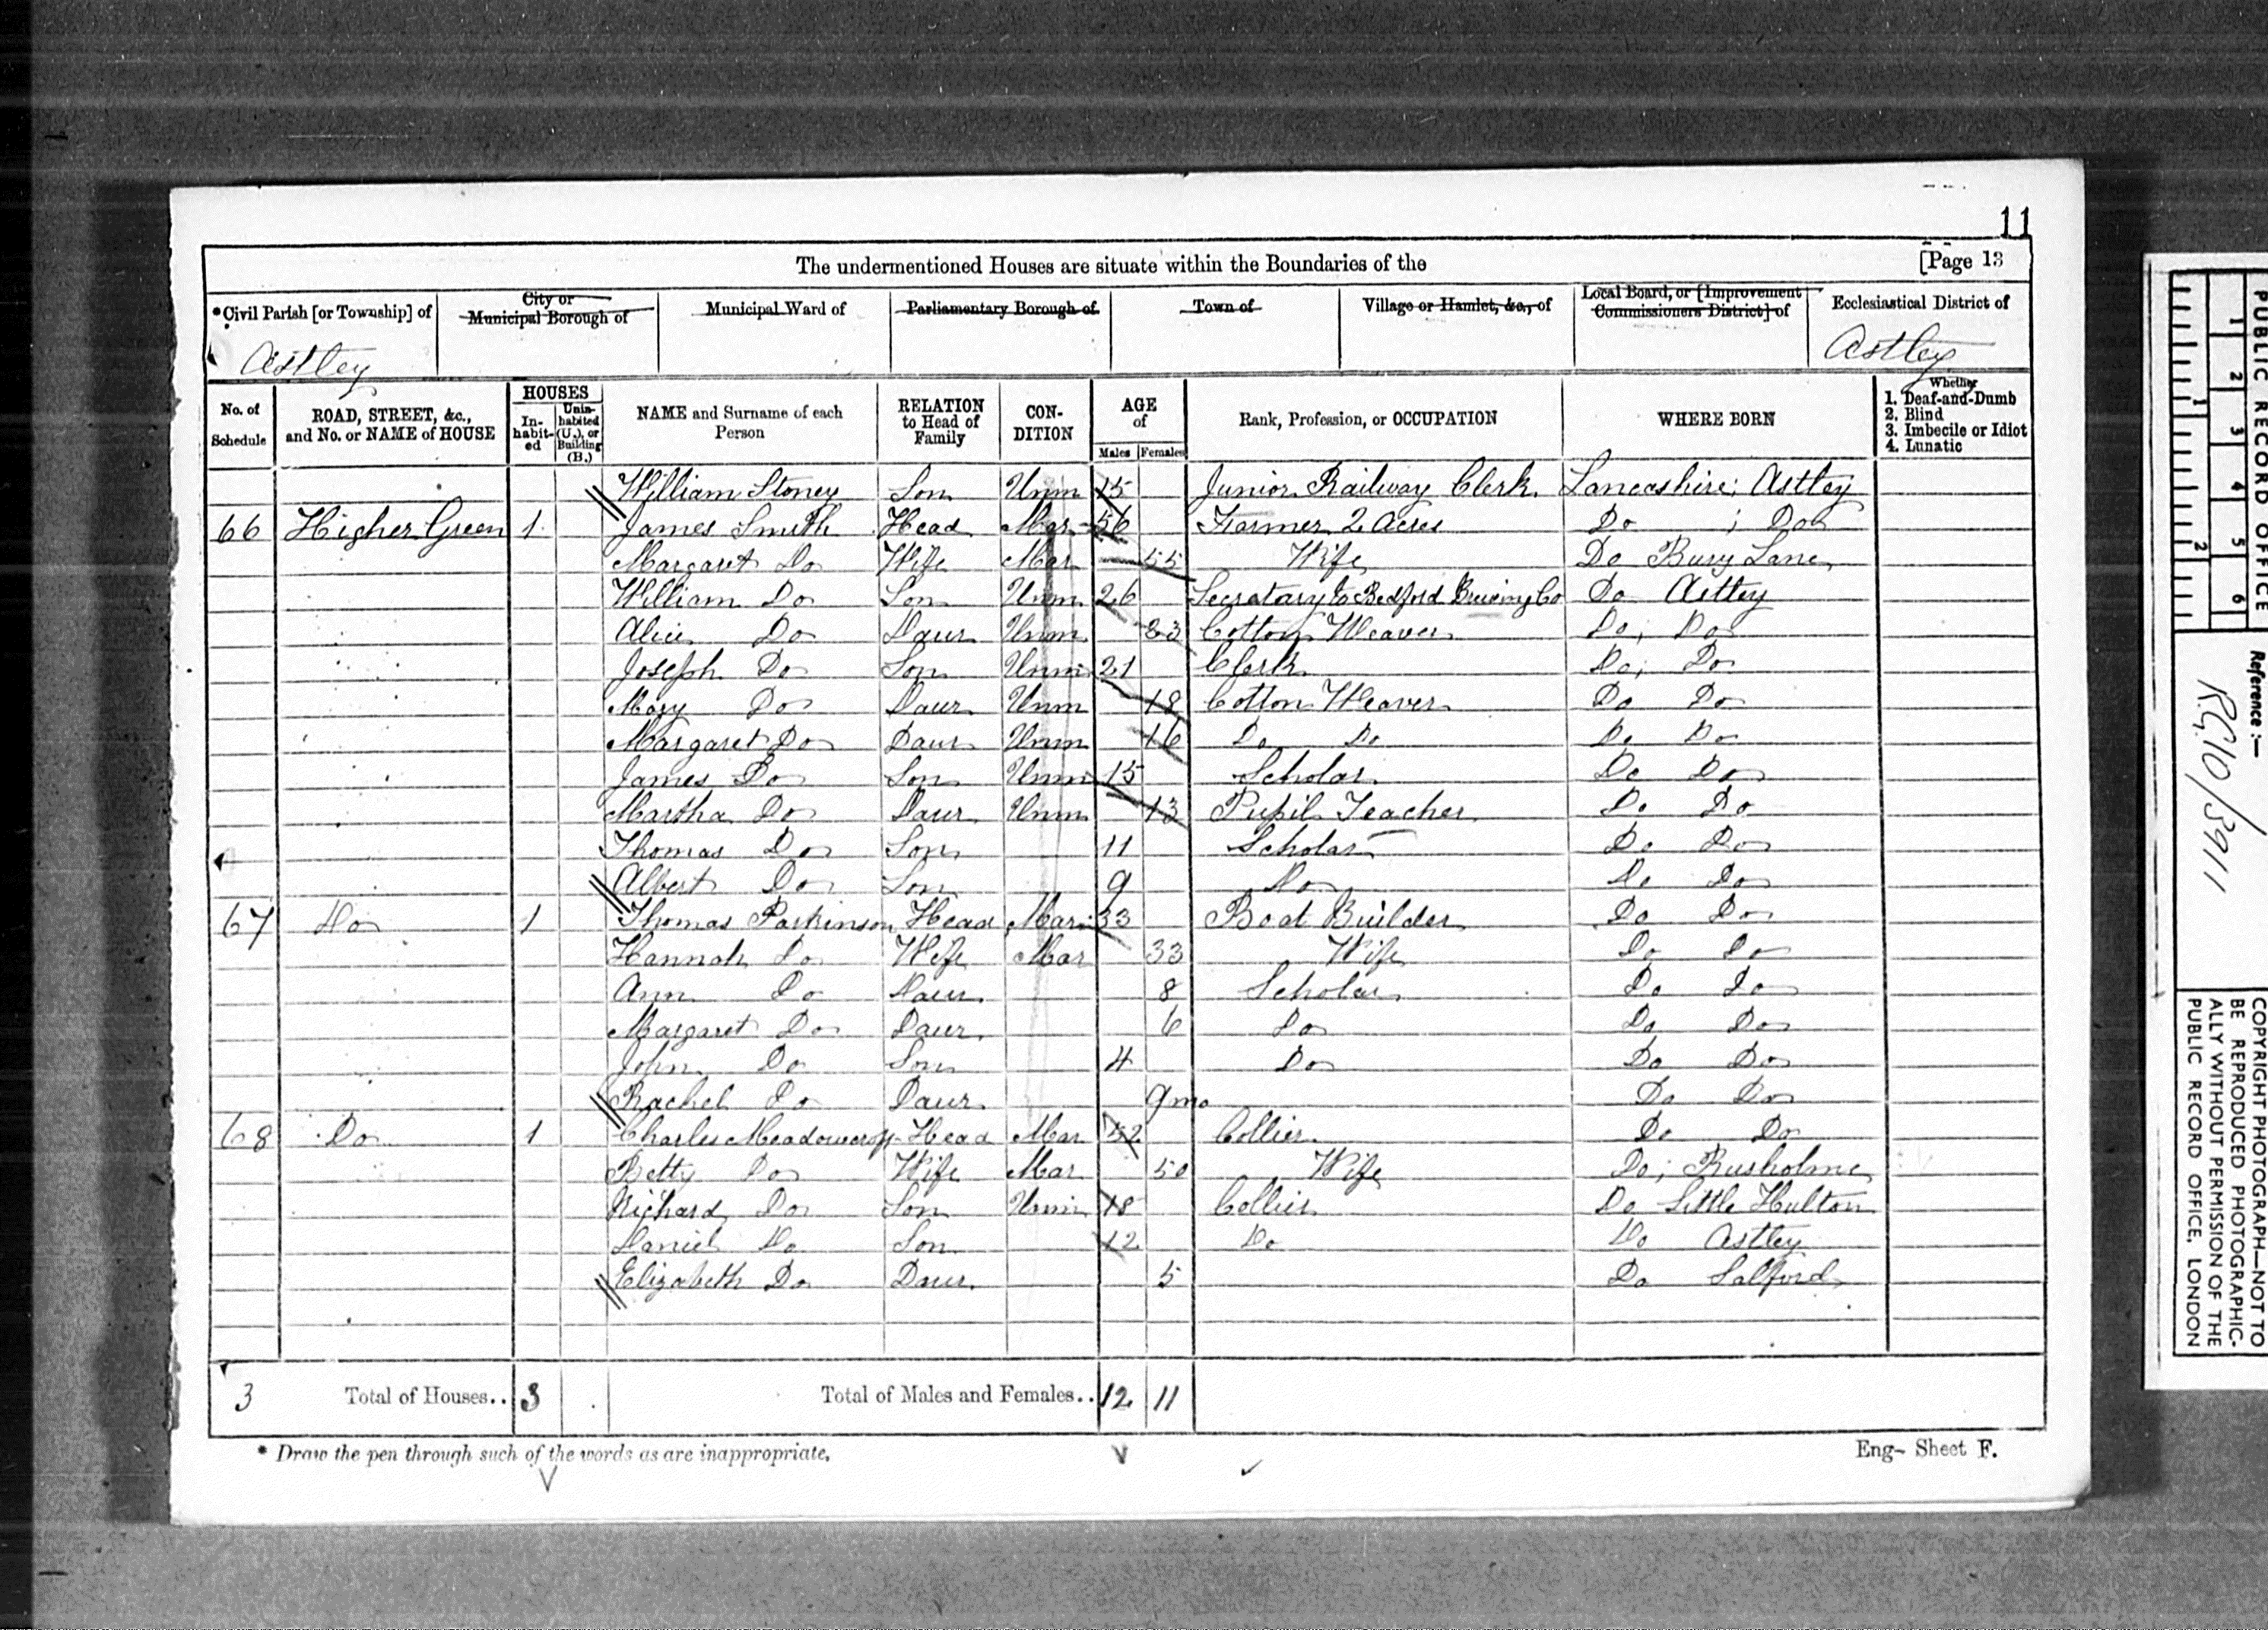 11
The undermentioned Houses are situate within the Boundaries of the [Page 13
*Civil Parish [or Township] of City or Municipal Borough of Municipal Ward of Parliamentary Borough of Town of Village or Hamlet, &c., of Local Board, or [Improvement Commissioners District] of Ecclesiastical District of
Astley Astley
No. of Schedule ROAD, STREET, &c., and No. or NAME of HOUSE HOUSES Inhabited Uninhabited (U.), or Building (B.) NAME and Surname of each Person RELATION to Head of Family CONDITION AGE of Males Females Rank, Profession, or OCCUPATION WHERE BORN Whether 1. Deaf-and-Dumb 2. Blind 3. Imbecile or Idiot 4. Lunatic
William Stoney Son Unm 15 Junior Railway Clerk Lancashire; Astley
66 Higher Green 1 James Smith Head Mar 56 Farmer 2 Acres Do ; Do
Margaret Do Wife Mar 55 Wife Do Bury Lane
William Do Son Unm 26 Secratary to Bedford Brewing Co Do Astley
Alice Do Daur Unm 23 Cotton Weaver Do; Do
Joseph Do Son Unm 21 Clerk Do; Do
Mary Do Daur Unm 18 Cotton Weaver Do Do
Margaret Do Daur Unm 16 Do Do Do Do
James Do Son Unm 15 Scholar Do Do
Martha Do Daur Unm 13 Pupil Teacher Do Do
Thomas Do Son 11 Scholar Do Do
Albert Do Son 9 Do Do Do
67 Do 1 Thomas Parkinson Head Mar 33 Boat Builder Do Do
Hannah Do Wife Mar 33 Wife Do Do
Ann Do Daur 8 Scholar Do Do
Margaret Do Daur 6 Do Do Do
John Do Son 4 Do Do Do
Rachel Do Daur 9mo Do Do
68 Do 1 Charles Meadowcroft Head Mar 52 Collier Do Do
Betty Do Wife Mar 50 Wife Do; Rusholme
Richard Do Son Unm 18 Collier Do Little Hulton
Daniel Do Son 12 Do Do Astley
Elizabeth Do Daur 5 Do Salford
3 Total of Houses.. 3 Total of Males and Females.. 12 11
* Draw the pen through such of the words as are inappropriate. Eng- Sheet F.
PUBLIC RECORD OFFICE
1 2 3 4 5 6
1 2
Reference :-
RG10/3911
COPYRIGHT PHOTOGRAPH—NOT TO
BE REPRODUCED PHOTOGRAPHIC-
ALLY WITHOUT PERMISSION OF THE
PUBLIC RECORD OFFICE, LONDON